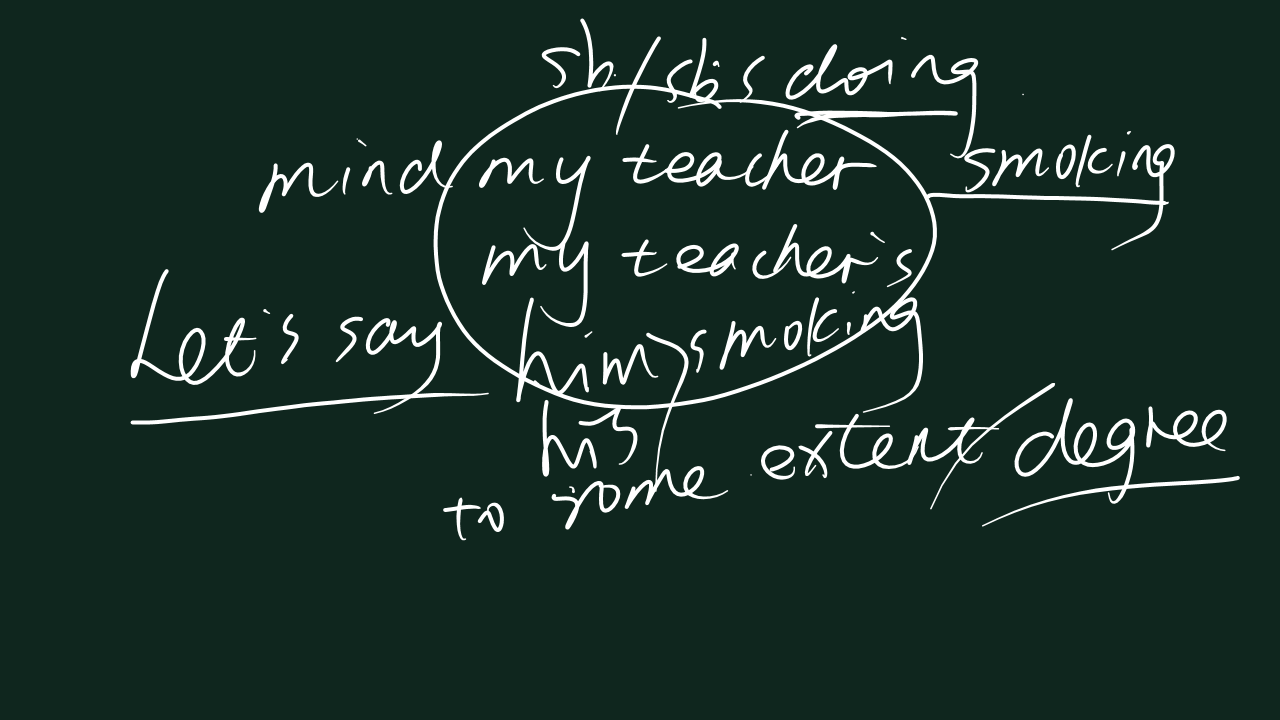 sb/sb's doing
mind my teacher smoking
my teacher's
Let's say him smoking
his
to some extent/degree